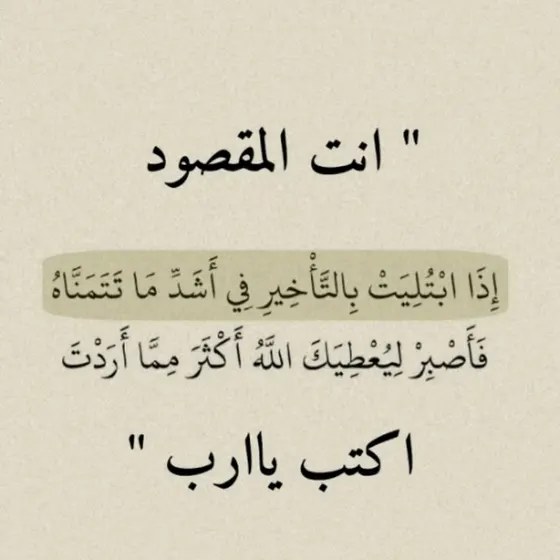 " انت المقصود
إِذَا ابْتُلِيَتْ بِالتَّأْخِيرِ فِي أَشَدِّ مَا تَتَمَنَّاهُ
فَأَصْبِرْ لِيُعْطِيَكَ اللَّهُ أَكْثَرَ مِمَّا أَرَدْتَ
اكتب ياارب "